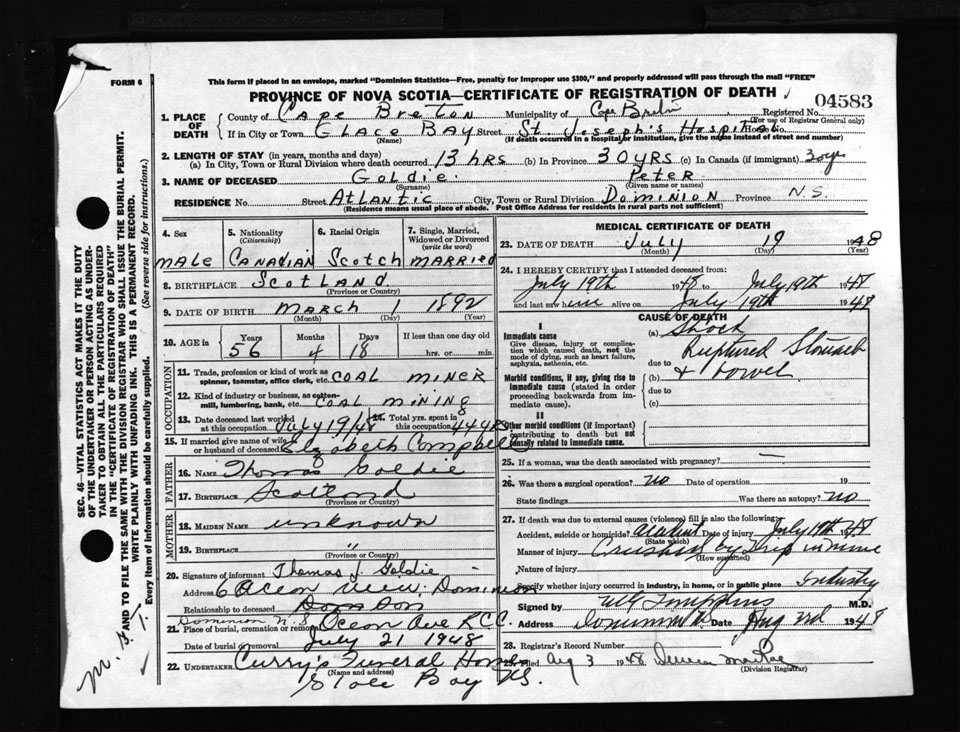 FORM 6
This form if placed in an envelope, marked "Dominion Statistics—Free, penalty for improper use $300," and properly addressed will pass through the mail "FREE"
PROVINCE OF NOVA SCOTIA—CERTIFICATE OF REGISTRATION OF DEATH
04583
1. PLACE OF DEATH
County of Cape Breton Municipality of Cape Breton Registered No.
(For use of Registrar General only)
If in City or Town Glace Bay Street St. Joseph's Hospital House No.
(Name) (If death occurred in a hospital or institution, give the name instead of street and number)
2. LENGTH OF STAY (in years, months and days)
(a) In City, Town or Rural Division where death occurred 13 hrs (b) In Province 30 yrs (c) In Canada (if immigrant) 30 yrs
3. NAME OF DECEASED Goldie. Peter
(Surname) (Given name or names)
RESIDENCE No. Street Atlantic City, Town or Rural Division Dominion Province N.S.
(Residence means usual place of abode. Post Office Address for residents in rural parts not sufficient)
4. Sex
male
5. Nationality (Citizenship)
Canadian
6. Racial Origin
Scotch
7. Single, Married, Widowed or Divorced (write the word)
married
8. BIRTHPLACE Scotland
(Province or Country)
9. DATE OF BIRTH March 1 1892
(Month) (Day) (Year)
10. AGE in Years Months Days If less than one day old
56 4 18 hrs. or min.
OCCUPATION
11. Trade, profession or kind of work as spinner, teamster, office clerk, etc. Coal miner
12. Kind of industry or business, as cotton-mill, lumbering, bank, etc. Coal mining
13. Date deceased last worked at this occupation July 19/48
14. Total yrs. spent in this occupation 44 yrs
15. If married give name of wife or husband of deceased Elizabeth Campbell
FATHER
16. NAME Thomas Goldie
17. BIRTHPLACE Scotland
(Province or Country)
MOTHER
18. MAIDEN NAME unknown
19. BIRTHPLACE "
(Province or Country)
20. Signature of informant Thomas J. Goldie
Address 6 Ocean View, Dominion
Relationship to deceased Son
Dominion N.S
21. Place of burial, cremation or removal Ocean Ave R.C.C.
Date of burial or removal July 21 1948
22. UNDERTAKER Curry's Funeral Home
(Name and address)
Glace Bay NS.
MEDICAL CERTIFICATE OF DEATH
23. DATE OF DEATH July 19 1948
(Month) (Day) (Year)
24. I HEREBY CERTIFY that I attended deceased from:
July 19th 1948 to July 19th 1948
and last saw him alive on July 19th 1948
CAUSE OF DEATH
I
Immediate cause
Give disease, injury or complication which caused death, not the mode of dying, such as heart failure, asphyxia, asthenia, etc.
(a) Shock
due to Ruptured Stomach
Morbid conditions, if any, giving rise to immediate cause (stated in order proceeding backwards from immediate cause).
(b) & bowel
due to
(c)
II
Other morbid conditions (if important) contributing to death but not causally related to immediate cause.
25. If a woman, was the death associated with pregnancy? —
26. Was there a surgical operation? no Date of operation 19
State findings Was there an autopsy? no
27. If death was due to external causes (violence) fill in also the following:
Accident, suicide or homicide? accident Date of injury July 19th 1948
(State which)
Manner of injury Crushed by trip in mine
(How sustained)
Nature of injury
Specify whether injury occurred in industry, in home, or in public place Industry
Signed by M.D.
Address Dominion Date Aug 3rd 1948
28. Registrar's Record Number
29. Filed Aug 3 1948
(Division Registrar)
SEC. 46—VITAL STATISTICS ACT MAKES IT THE DUTY
OF THE UNDERTAKER OR PERSON ACTING AS UNDER-
TAKER TO OBTAIN ALL THE PARTICULARS REQUIRED
IN THE "CERTIFICATE OF REGISTRATION OF DEATH"
AND TO FILE THE SAME WITH THE DIVISION REGISTRAR WHO SHALL ISSUE THE BURIAL PERMIT.
WRITE PLAINLY WITH UNFADING INK. THIS IS A PERMANENT RECORD.
Every item of Information should be carefully supplied. (See reverse side for instructions.)